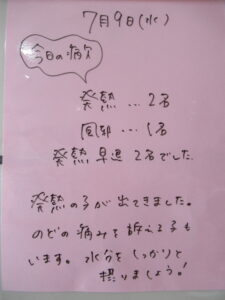 7月9日(水)
今日の病欠
発熱…2名
風邪…1名
発熱早退 2名でした。
発熱の子が出てきました。
のどの痛みを訴える子も
います。水分をしっかりと
摂りましょう!